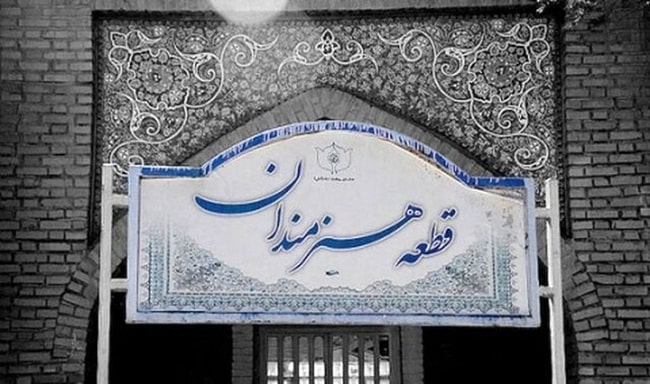 قطعه هنرمندان